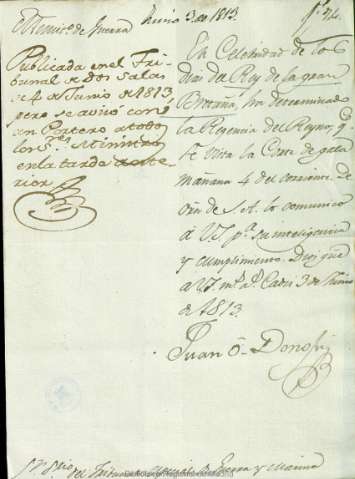 Junio 3 de 1813.
Publicada en el Tri-
bunal de dos Salas
de 4 de Junio de 1813
pero se avisó con
un Portero a todos
los Sres Ministros
en la tarde ante-
rior
En Celebridad de los
dias del Rey de la gran
Bretaña, ha determinado
la Regencia del Reyno, q
se vista la Corte de gala
mañana 4 del corriente. de
orn de S. A. lo comunico
á V.S. pa su inteligencia
y cumplimiento. Dios gue
a V.S. ms as Cadiz 3 de Junio
de 1813
Juan O-Donojú
Sr Srio del Tribunal de Guerra y Marina